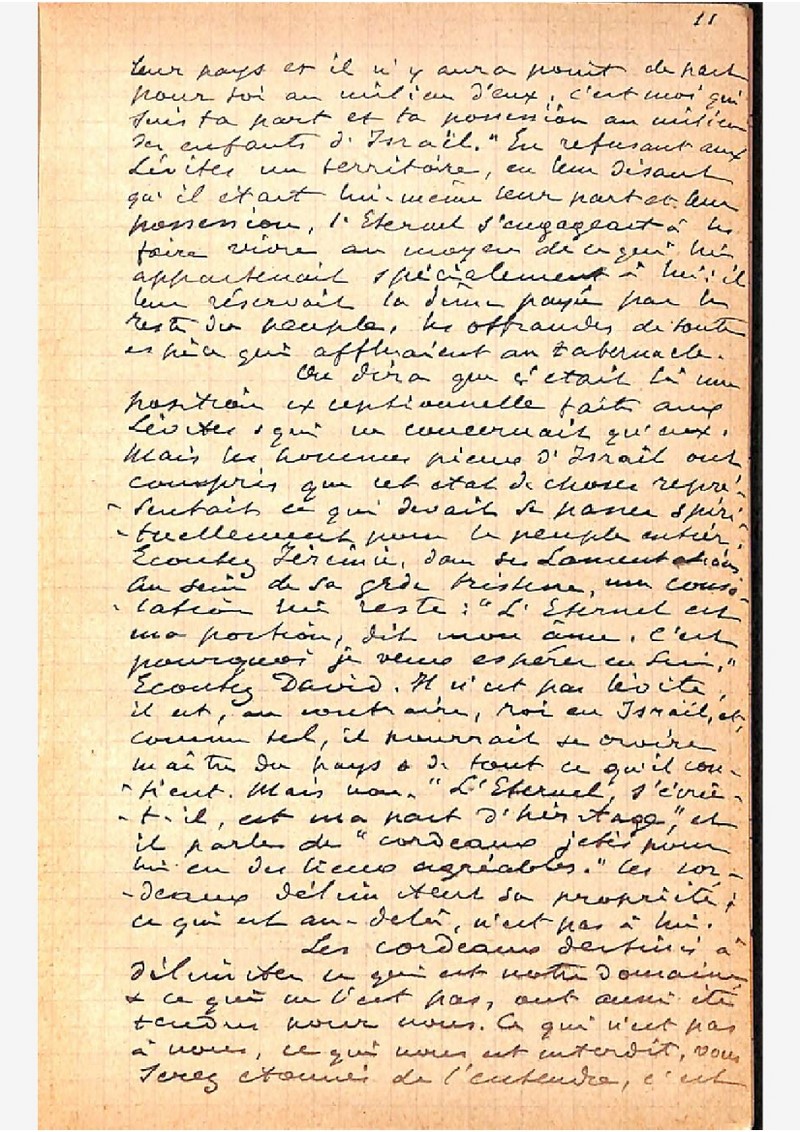 11
leur pays et il n'y aura point de part
pour toi au milieu d'eux. C'est moi qui
suis ta part et ta possession au milieu
des enfants d'Israël." En refusant aux
Lévites un territoire, en leur disant
qu'il était lui-même leur part et leur
possession, l'Eternel s'engageait à les
faire vivre au moyen de ce qui lui
appartenait spécialement à lui: il
leur réservait la dîme payée par le
reste du peuple, les offrandes de toute
espèce qui affluaient au tabernacle.
On dira que c'était là une
position exceptionnelle faite aux
Lévites & qui ne concernait qu'eux.
Mais les hommes pieux d'Israël ont
compris que cet état de choses repré-
-sentait ce qui devait se passer spiri-
-tuellement pour le peuple entier.
Ecoutez Jérémie, dans ses Lamentations
Au sein de sa grde tristesse, une conso-
-lation lui reste: "L'Eternel est
ma portion, dit mon âme. C'est
pourquoi je veux espérer en Lui."
Ecoutez David. Il n'est pas lévite,
il est, au contraire, roi en Israël, et,
comme tel, il pourrait se croire
maître du pays & de tout ce qu'il con-
-tient. Mais non. "L'Eternel, s'écrie-
-t-il, est ma part d'héritage", et
il parle de "cordeaux jetés pour
lui en des lieux agréables." Ces cor-
-deaux délimitent sa propriété;
ce qui est au-delà, n'est pas à lui.
Les cordeaux destinés à
délimiter ce qui est notre domaine
& ce qui ne l'est pas, ont aussi été
tendus pour nous. Ce qui n'est pas
à nous, ce qui nous est interdit, vous
serez étonnés de l'entendre, c'est